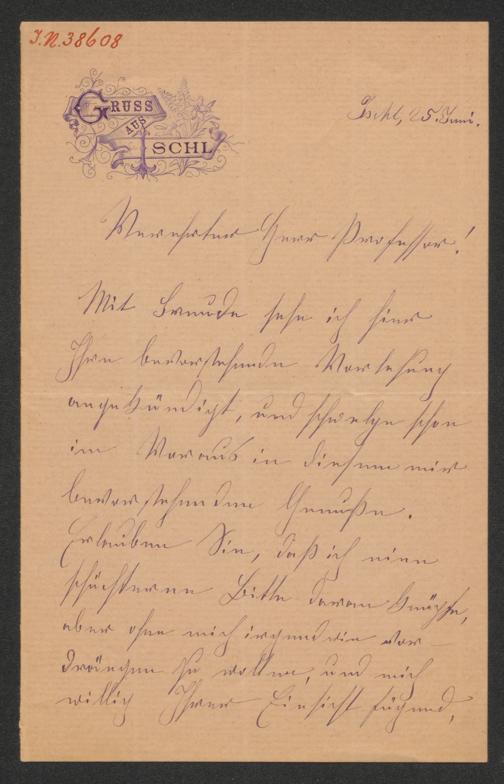 J.N. 38608
GRUSS
AUS
ISCHL
Ischl, 25. Juni.
Verehrter Herr Professor!
Mit Freude sehe ich hier
Ihre bevorstehende Vorlesung
angekündigt, und schwelge schon
im Voraus in diesem mir
bevorstehenden Genuße.
Erlauben Sie, daß ich eine
schüchterne Bitte daran knüpfe,
aber ohne mich irgendwie vor-
drängen zu wollen, und mich
willig Ihrer Einsicht fügend,